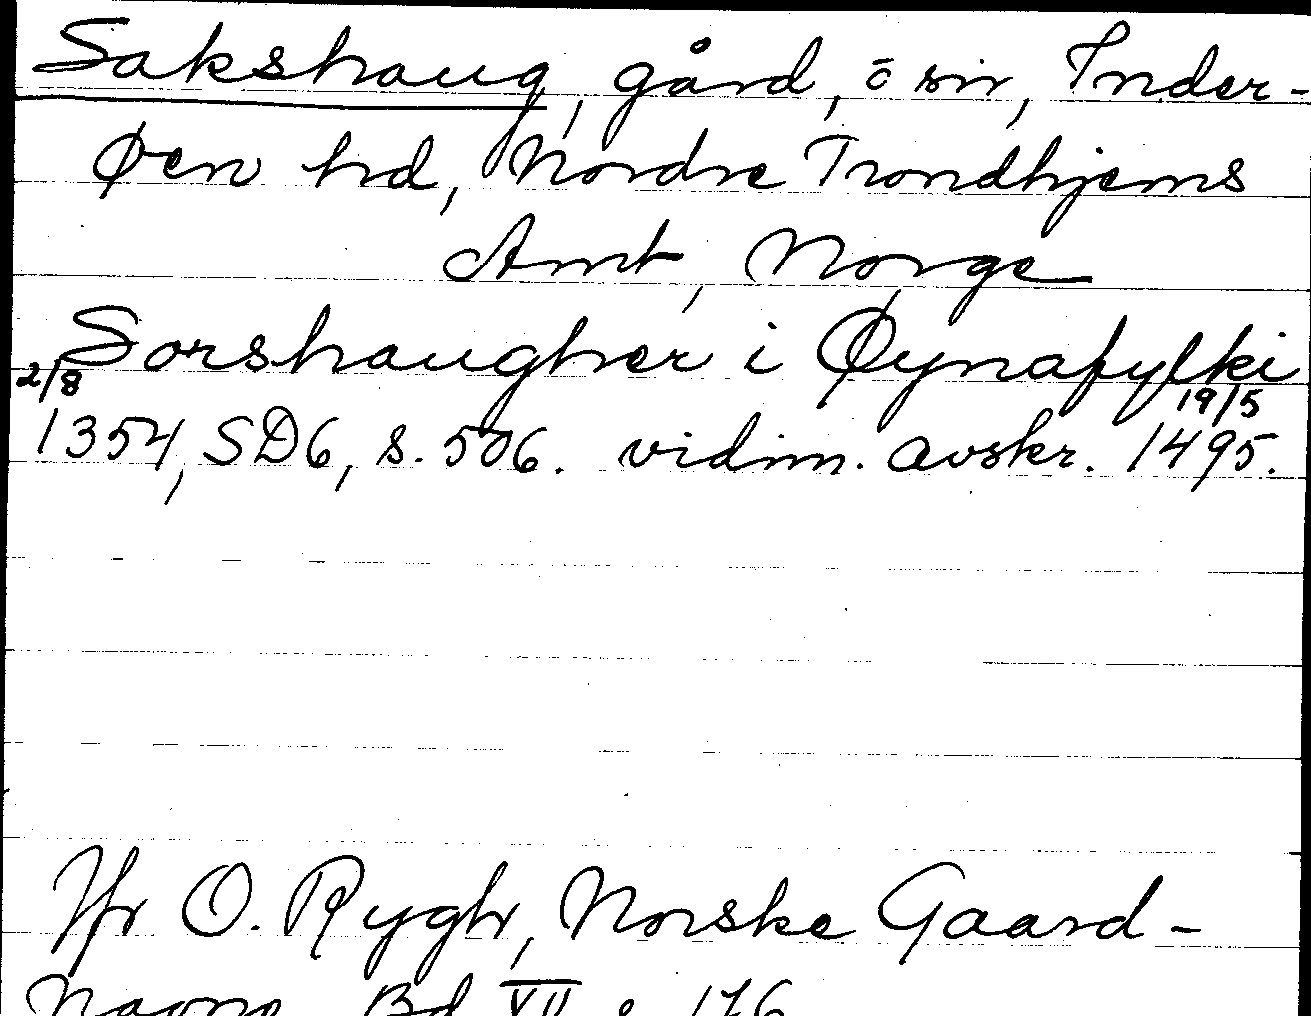 Sakshaug, gård, ō sn, Inder-
Øen hd, Nordre Trondhjems
Amt, Norge
Sorshaugher i Øynafylki
2/8 19/5
1354, SD6, s. 506. vidim. avskr. 1495.
Jfr O. Rygh, Norske Gaard-
Navne Bd VII s 176